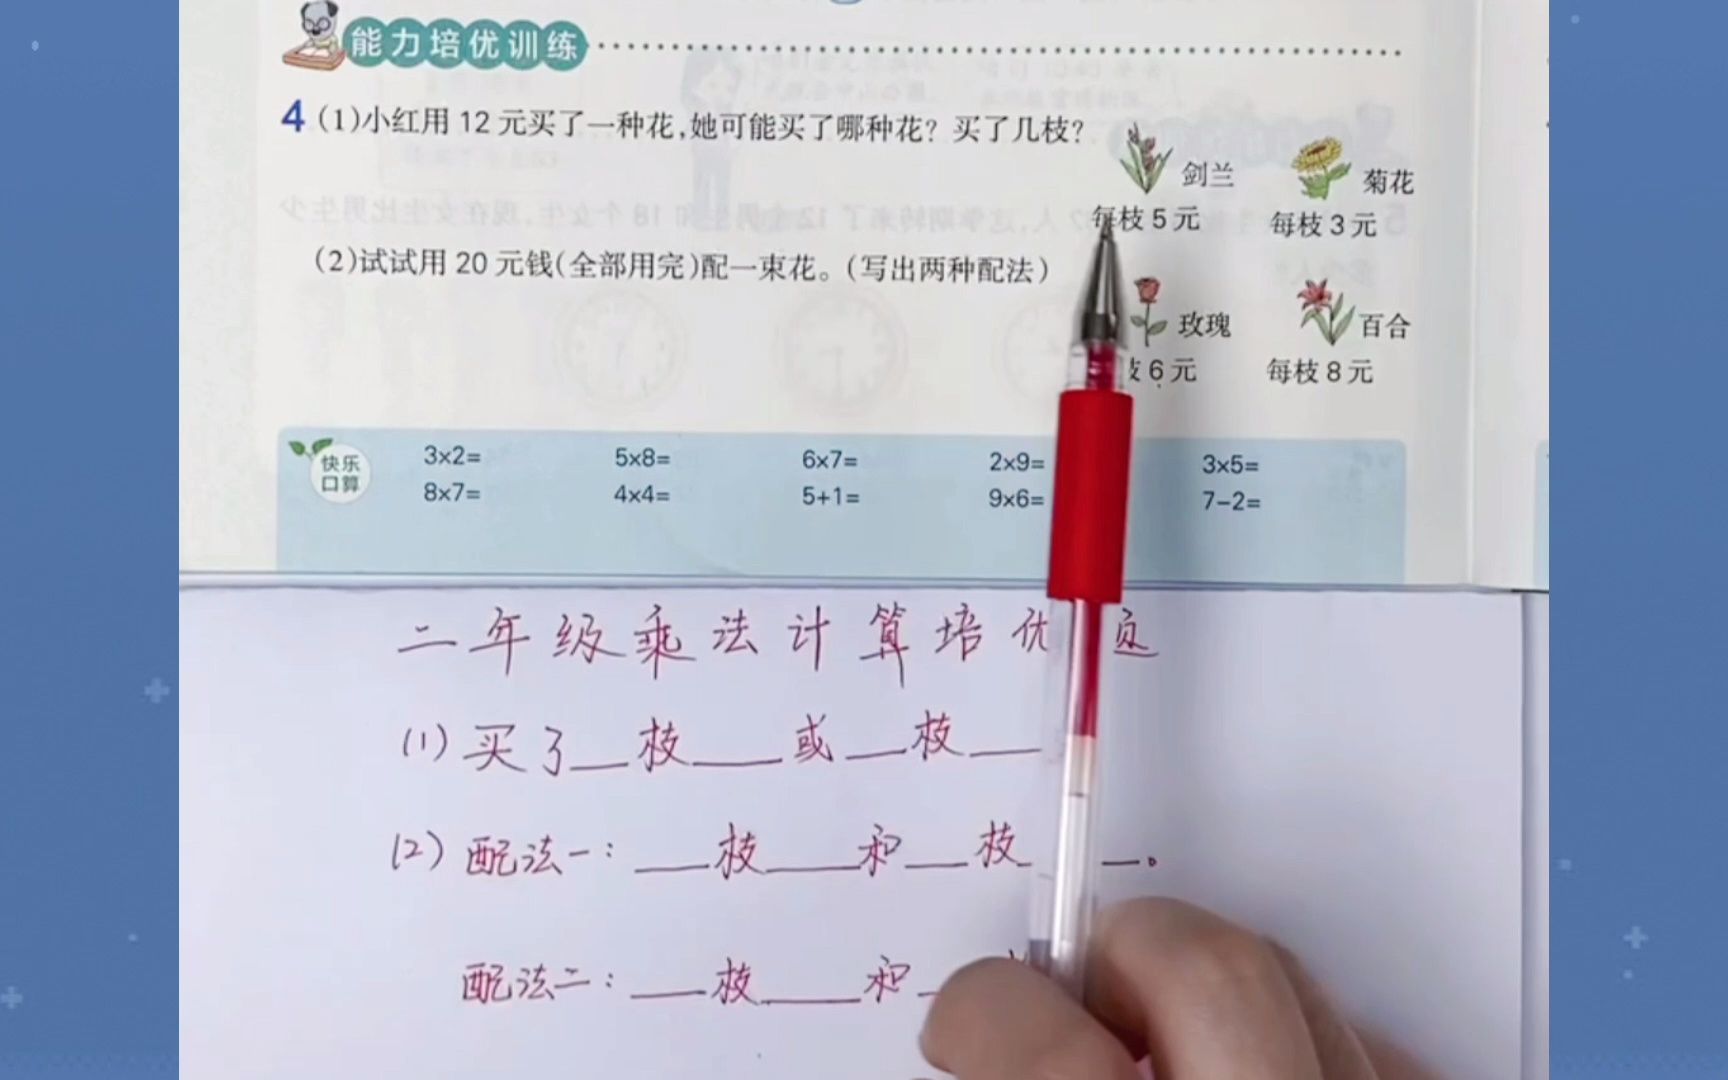 能力培优训练
4 (1)小红用 12 元买了一种花,她可能买了哪种花？买了几枝？
剑兰 菊花
每枝 5 元 每枝 3 元
(2)试试用 20 元钱(全部用完)配一束花。(写出两种配法)
玫瑰 百合
6 元 每枝 8 元
快乐口算
3×2= 5×8= 6×7= 2×9= 3×5=
8×7= 4×4= 5+1= 9×6= 7-2=
二年级乘法计算培优
(1) 买了__枝___或__枝___
(2) 配法一：___枝____和__枝____。
配法二：___枝____和